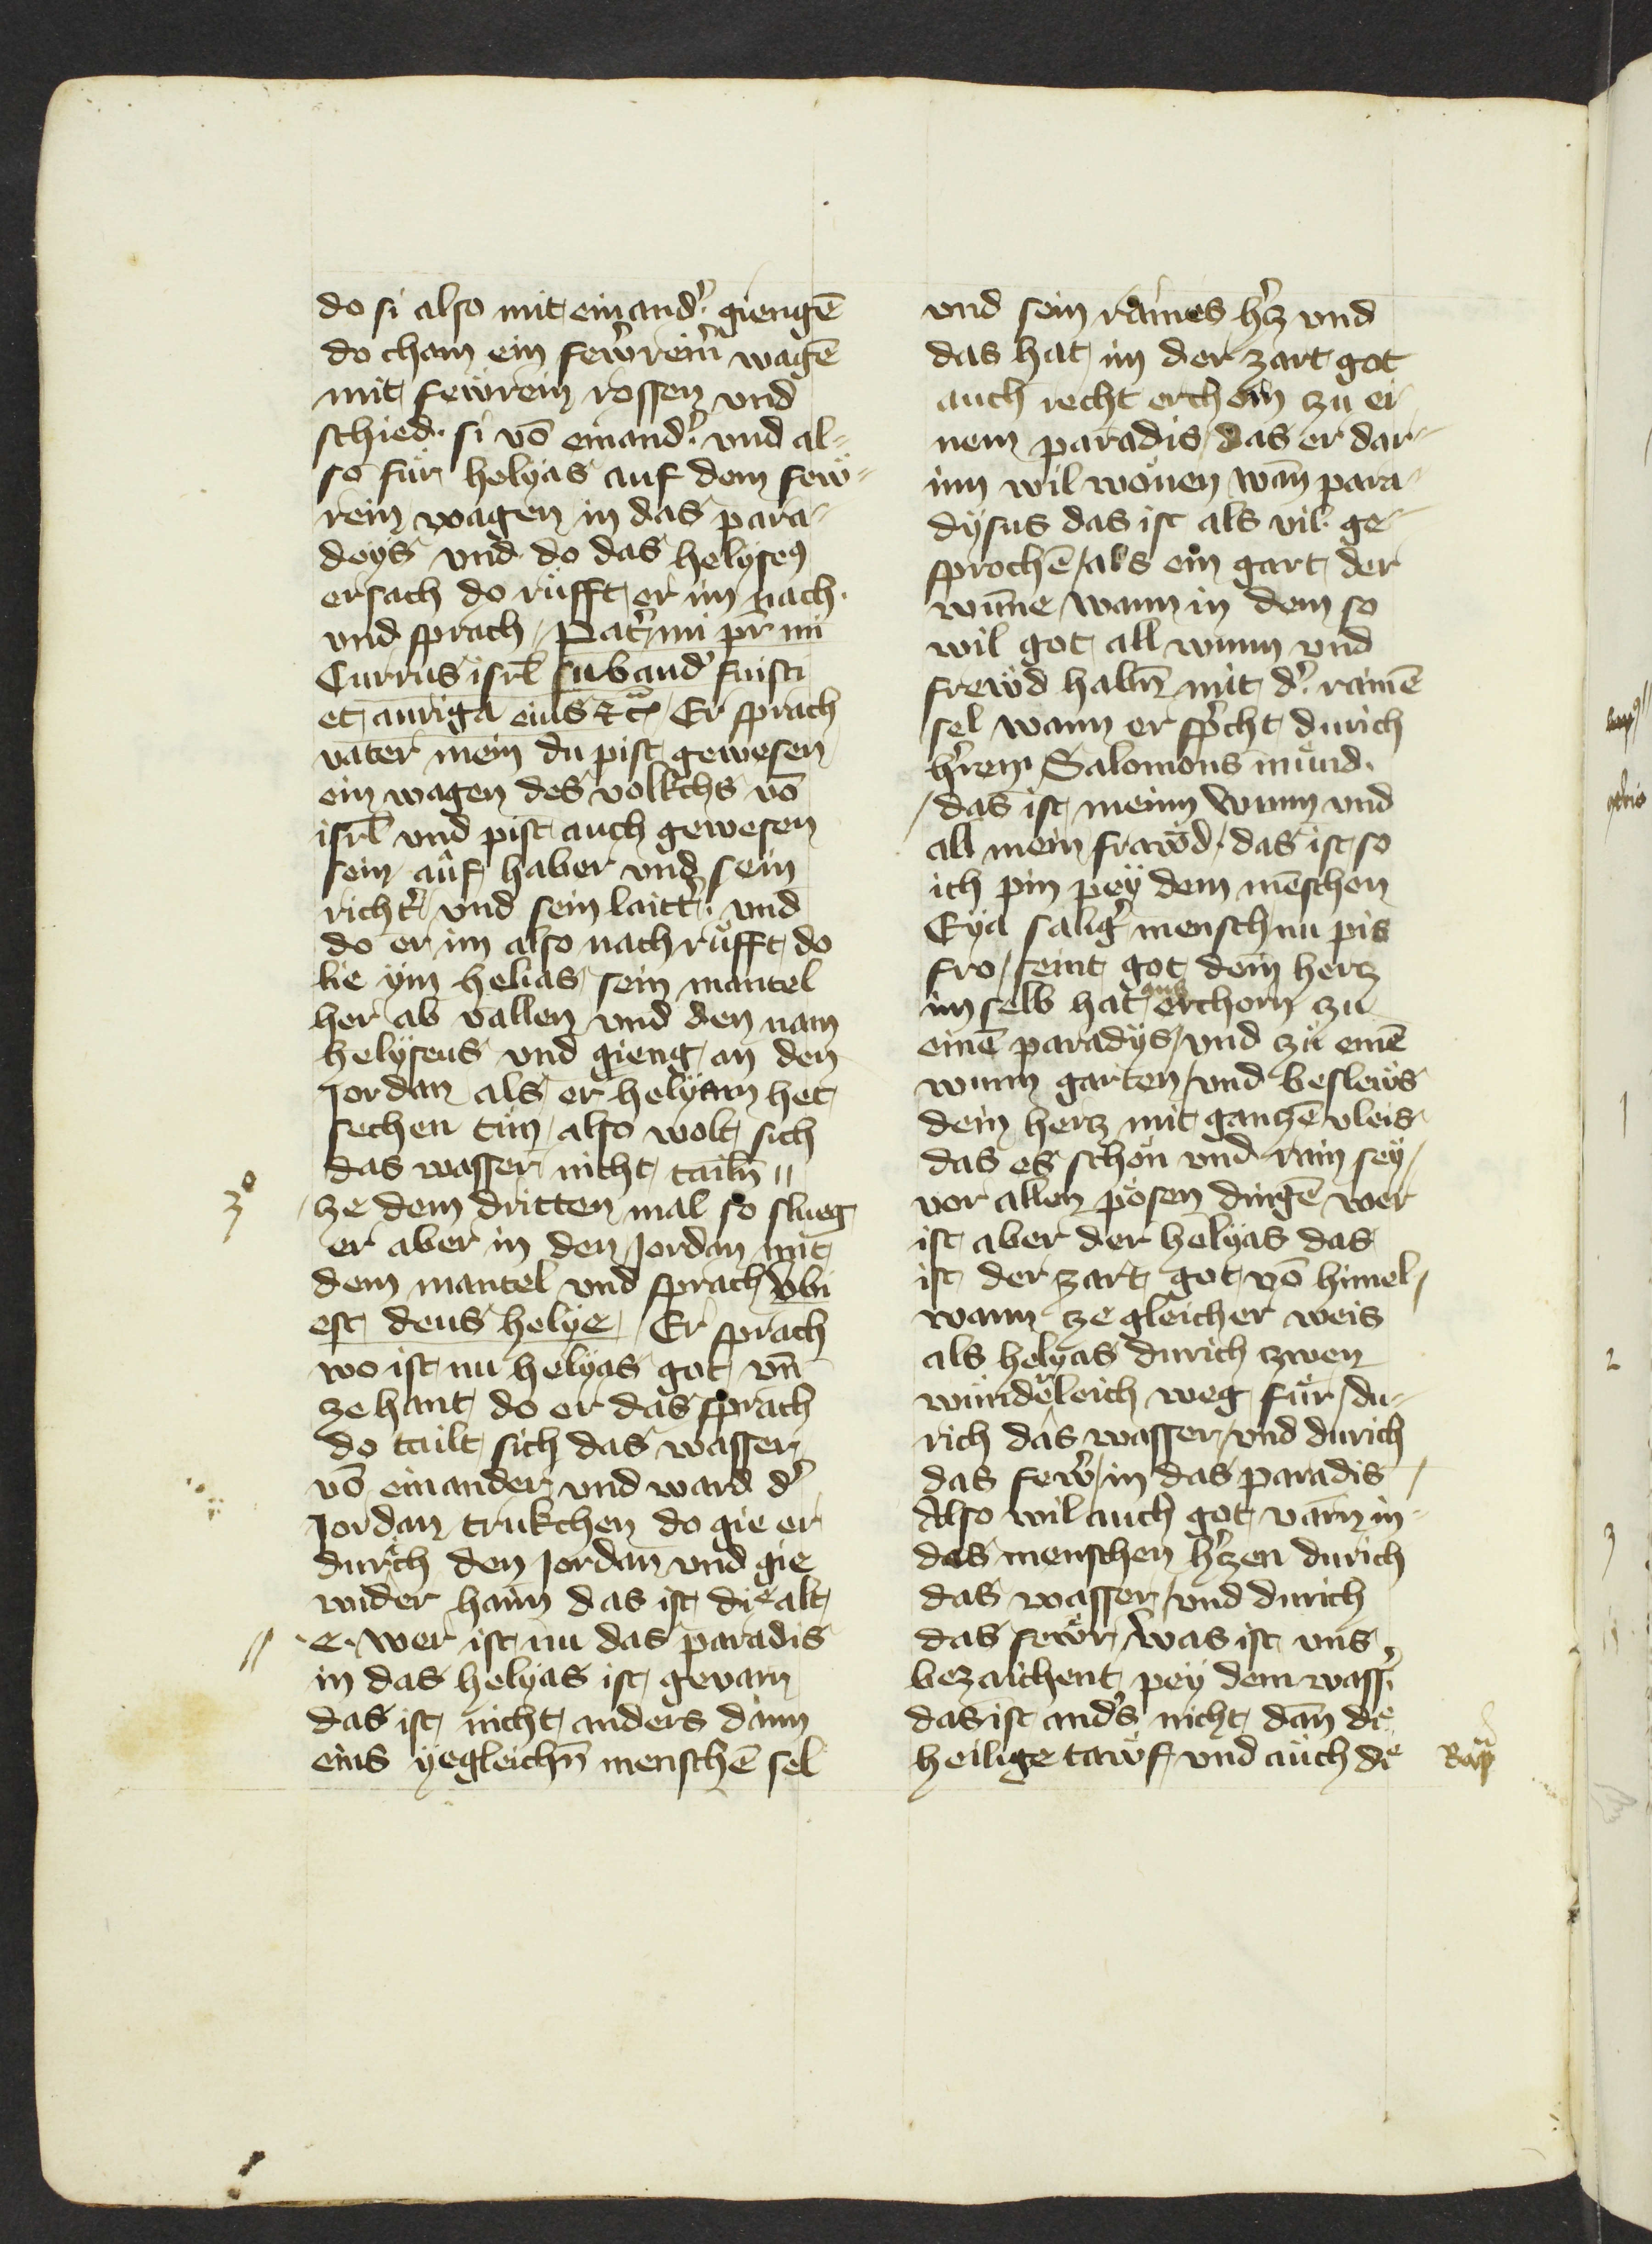 do si also mit einand' giengē
do cham ein fewreim̄ wagē
mit fewrein rossen vnd
schied si vō einand' vnd al-
so für helyas auf dem few-
rein wagen in das para-
deys vnd do das helyseꝰ
ersach do rüfft er im nach
vnd sprach Pat' mi pr̄ mi
Currus isrl̄ suband' fuisti
et auriga eius ⁊c̄ Er sprach
vater mein du pist gewesen
ein wagen des volkchs vō
isrl̄ vnd pist auch gewesen
sein aůf haber vnd sein
richt' vnd sein laitt' vnd
do er im also nach růfft do
lie ym helias sein mantel
her ab vallen vnd den nam
helyseus vnd gieng an den
Jordan als er helyam het
sechen tůn also wolt sich
das wasser nicht tailn̄ //
3o
ze dem dritten mal so slueg
er aber in den Jordan mit
dem mantel vnd sprach vbi
est deus helye Er sprach
wo ist nu helyas got vn̄
ze hant do er das sprach
do tailt sich das wasser
vō einander vnd ward d'
Jordan trukchen do gie er
durch den Jordan vnd gie
wider haim das ist die alt
// e. wer ist nu das paradis
in das helyas ist gevarn
das ist nicht anders dann
eins yegleichn̄ menschē sel
vnd sein raines h'cz vnd
das hat im der zart got
auch recht erchorn zu ei-
nem paradis das er dar-
inn wil wonen wan̄ para-
dysus das ist als vil ge-
sprochē / als ein gart der
wun̄e / wann in dem so
wil got all wunn vnd
frewd habn̄ mit d' rainē
sel wann er sp'cht durich
h'ren Salomons mund
/ das ist meinn wunn vnd
all mein frawd / das ist so
ich pin pey dem mēschen
Eya salig' mensch nu pis
fro / seint got dein hertz
im selb hat aus erchorn zu
einē paradys / vnd zů einē
wunn garten / vnd besleůs
dein hercz mit ganczē vleis
das es schön vnd rain sey /
vor allen pösen dingē wer
ist aber der helyas das
ist der zart got vō himel /
wann ze gleicher weis
als helyas durich zwen
wund'leich weg für / du-
rich das wasser / vnd durich
das fewr / in das paradis /
Also wil auch got varn in
des menschen h'zen durich
das wasser / vnd durich
das fewr / was ist vns
bezaichent pey dem wass'
das ist and's nicht dan̄ die
heilige tawf vnd auch die